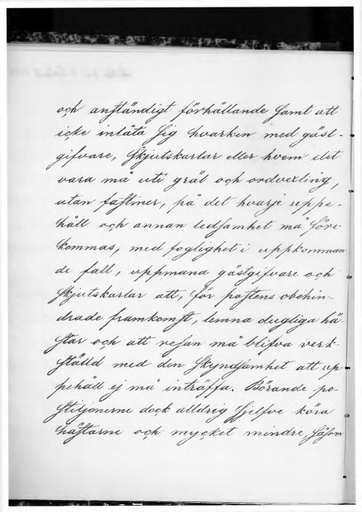 och anständigt förhållande samt att
icke inlåta sig hvarken med gäst-
gifvare, skjutskarlar eller hvem det
vara må uti gräl och ordvexling,
utan fastmer, på det hvarje uppe-
håll och annan ledsamhet må före-
kommas, med foglighet i uppkomman
de fall, uppmana gästgifvare och
skjutskarlar att, för postens obehin-
drade framkomst, lemna dugliga hä-
star och att resan må blifva verk-
ställd med den skyndsamhet att up
pehåll ej må inträffa. Börande po-
stiljonerne dock alldrig sjelfve köra
hästarne och mycket mindre, såsom